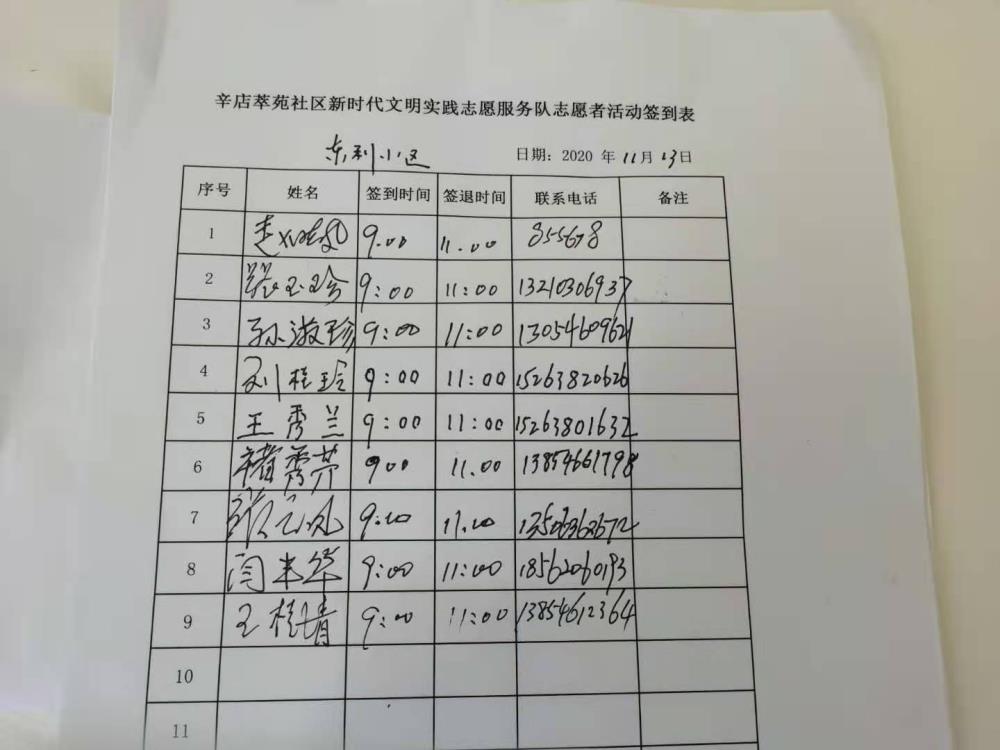 辛店萃苑社区新时代文明实践志愿服务队志愿者活动签到表
东利小区 日期：2020 年 11月 13日
序号 姓名 签到时间 签退时间 联系电话 备注
1 9.00 11.00 855678
2 张玉珍 9:00 11:00 13210306937
3 孙淑珍 9:00 11:00 13054609621
4 刘桂玲 9:00 11:00 15263820626
5 王秀兰 9:00 11:00 15263801632
6 褚秀芹 900 11.00 13854661798
7 9:00 11.00
8 闫丰华 9:00 11:00 18562060193
9 王桂清 9:00 11:00 13854612364
10
11